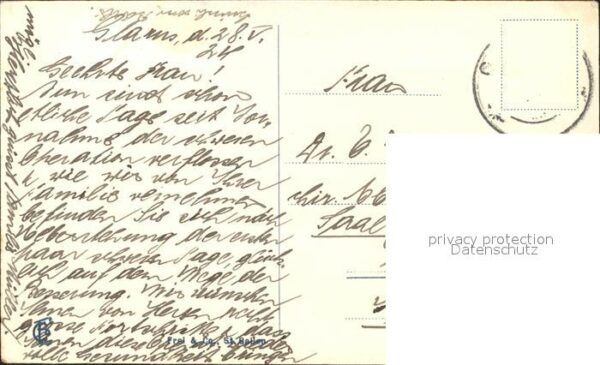 Glarus, d. 28. V.
24
Geehrte Frau!
Nun sind schon
etliche Tage seit Vor-
nahme der schweren
Operation verflossen
& wie wir von Ihrer
Familie vernehmen
befinden Sie sich nach
Ueberstehung der ersten
paar schweren Tage glück-
lich auf dem Wege der
Besserung. Wir wünschen
Ihnen von Herzen recht
grosse Fortschritte & dass
Ihnen diese
volle Gesundheit bringen
möge.
Frau
Dr. C.
chir. Abt
Saal
Frei & Co., St. Gallen
privacy protection
Datenschutz